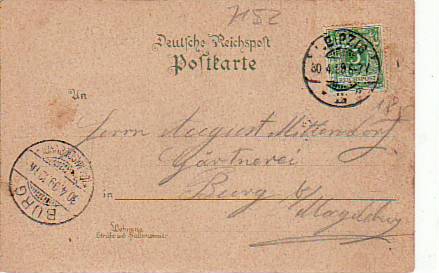 1152
Deutsche Reichspost
Postkarte
LEIPZIG
An
Herrn August Mittendorf
Gärtnerei
in Burg b/
Magdeburg
BURG
Wohnung
Straße und Hausnummer